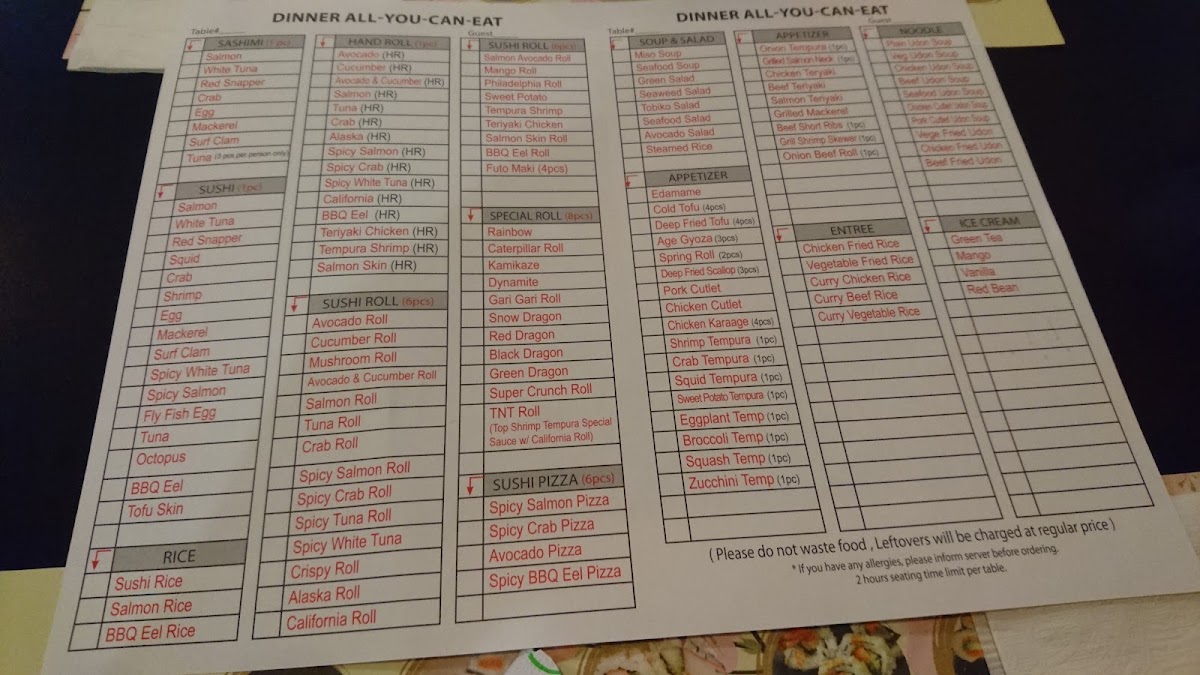 DINNER ALL-YOU-CAN-EAT
Table#
Guest
SASHIMI (1pc)
Salmon
White Tuna
Red Snapper
Crab
Egg
Mackerel
Surf Clam
Tuna (3 pcs per person only)
SUSHI (1pc)
Salmon
White Tuna
Red Snapper
Squid
Crab
Shrimp
Egg
Mackerel
Surf Clam
Spicy White Tuna
Spicy Salmon
Fly Fish Egg
Tuna
Octopus
BBQ Eel
Tofu Skin
RICE
Sushi Rice
Salmon Rice
BBQ Eel Rice
HAND ROLL (1pc)
Avocado (HR)
Cucumber (HR)
Avocado & Cucumber (HR)
Salmon (HR)
Tuna (HR)
Crab (HR)
Alaska (HR)
Spicy Salmon (HR)
Spicy Crab (HR)
Spicy White Tuna (HR)
California (HR)
BBQ Eel (HR)
Teriyaki Chicken (HR)
Tempura Shrimp (HR)
Salmon Skin (HR)
SUSHI ROLL (6pcs)
Avocado Roll
Cucumber Roll
Mushroom Roll
Avocado & Cucumber Roll
Salmon Roll
Tuna Roll
Crab Roll
Spicy Salmon Roll
Spicy Crab Roll
Spicy Tuna Roll
Spicy White Tuna
Crispy Roll
Alaska Roll
California Roll
SUSHI ROLL (6pcs)
Salmon Avocado Roll
Mango Roll
Philadelphia Roll
Sweet Potato
Tempura Shrimp
Teriyaki Chicken
Salmon Skin Roll
BBQ Eel Roll
Futo Maki (4pcs)
SPECIAL ROLL (8pcs)
Rainbow
Caterpillar Roll
Kamikaze
Dynamite
Gari Gari Roll
Snow Dragon
Red Dragon
Black Dragon
Green Dragon
Super Crunch Roll
TNT Roll
(Top Shrimp Tempura Special
Sauce w/ California Roll)
SUSHI PIZZA (6pcs)
Spicy Salmon Pizza
Spicy Crab Pizza
Avocado Pizza
Spicy BBQ Eel Pizza
DINNER ALL-YOU-CAN-EAT
Table#
Guest
SOUP & SALAD
Miso Soup
Seafood Soup
Green Salad
Seaweed Salad
Tobiko Salad
Seafood Salad
Avocado Salad
Steamed Rice
APPETIZER
Edamame
Cold Tofu (4pcs)
Deep Fried Tofu (4pcs)
Age Gyoza (3pcs)
Spring Roll (2pcs)
Deep Fried Scallop (3pcs)
Pork Cutlet
Chicken Cutlet
Chicken Karaage (4pcs)
Shrimp Tempura (1pc)
Crab Tempura (1pc)
Squid Tempura (1pc)
Sweet Potato Tempura (1pc)
Eggplant Temp (1pc)
Broccoli Temp (1pc)
Squash Temp (1pc)
Zucchini Temp (1pc)
APPETIZER
Onion Tempura (1pc)
Grilled Salmon Neck (1pc)
Chicken Teryaki
Beef Teriyaki
Salmon Teriyaki
Grilled Mackerel
Beef Short Ribs (1pc)
Grill Shrimp Skewer (1pc)
Onion Beef Roll (1pc)
ENTREE
Chicken Fried Rice
Vegetable Fried Rice
Curry Chicken Rice
Curry Beef Rice
Curry Vegetable Rice
NOODLE
Plain Udon Soup
Veg Udon Soup
Chicken Udon Soup
Beef Udon Soup
Seafood Udon Soup
Chicken Cutlet Udon Soup
Pork Cutlet Udon Soup
Vege Fried Udon
Chicken Fried Udon
Beef Fried Udon
ICE CREAM
Green Tea
Mango
Vanilla
Red Bean
( Please do not waste food , Leftovers will be charged at regular price )
* If you have any allergies, please inform server before ordering.
2 hours seating time limit per table.